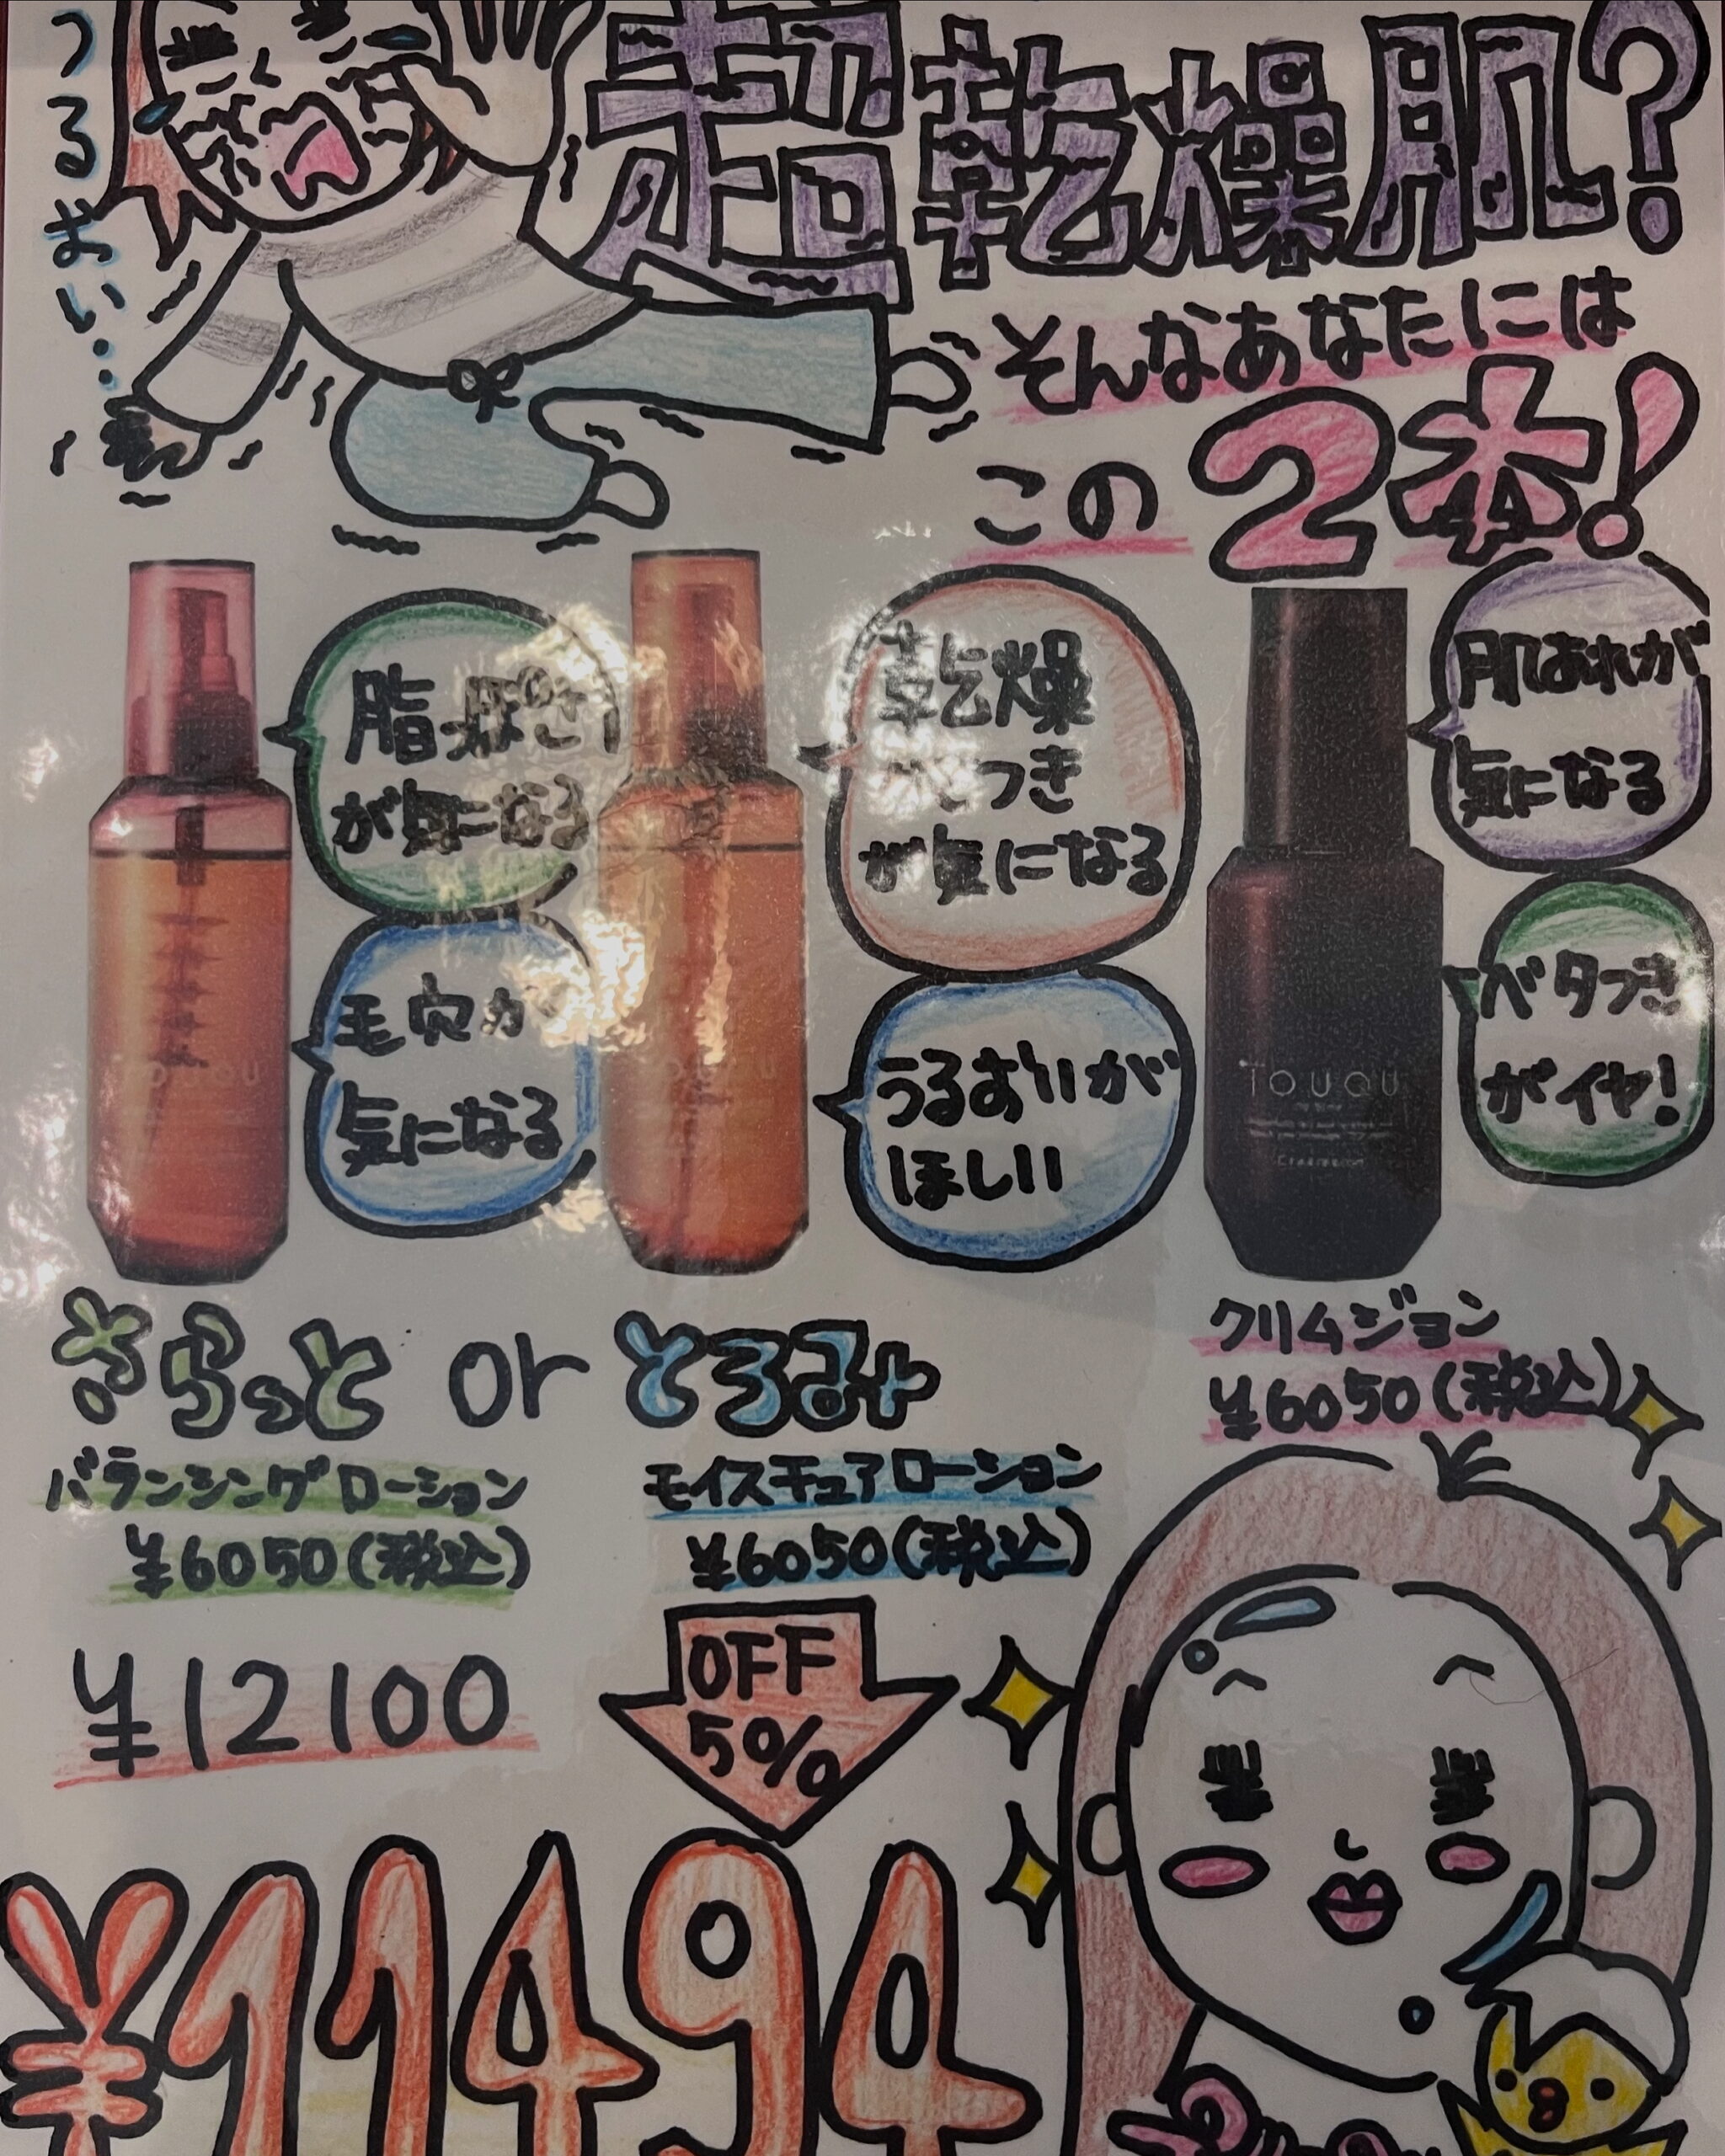 うるおい…
超乾燥肌?
そんなあなたには
この2本!
脂っぽさ
が気になる
毛穴が
気になる
乾燥
がさつき
が気になる
うるおいが
ほしい
肌あれが
気になる
ベタつき
がイヤ!
TOUOU
TOUOU
TOUOU
さらっと or とろみ
バランシングローション
¥6050(税込)
モイスチュアローション
¥6050(税込)
クリムジョン
¥6050(税込)
¥12100
OFF
5%
¥11494